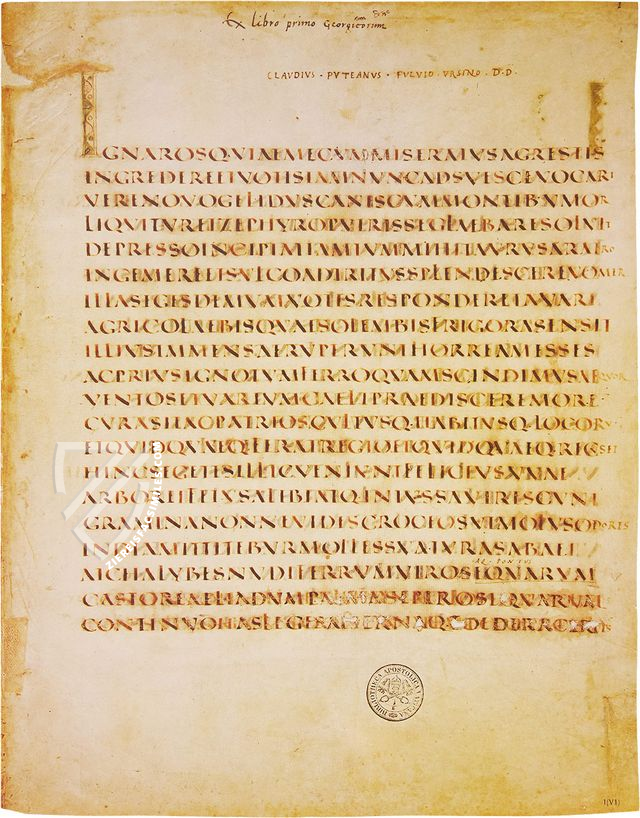 Ex libro primo Georgicorum
CLAVDIVS · PVTEANVS · FVLVIO · VRSINO · D·D·
IGNAROSQVIAEMECVMMISERATVSAGRESTIS
INGREDEREETVOTISIAMNVNCADSVESCEVOCARI
VERENOVOGELIDVSCANISCVMMONTIBVSVMOR
LIQVITVRETZEPHYROPVTRISSEGLAEBARESOLVIT
DEPRESSOINCIPIATIAMTVMMIHITAVRVSARATRO
INGEMEREETSVLCOADTRITVSSPLENDESCEREVOMER
ILLASEGESDEMVMVOTISRESPONDETAVARI
AGRICOLAEBISQVAESOLEMBISFRIGORASENSIT
ILLIVSIMMENSAERVPERVNTHORREAMESSES
ACPRIVSIGNOTVMFERROQVAMSCINDIMVSAEQVOR
VENTOSETVARIVMCAELIPRAEDISCEREMORE
CVRASITACPATRIOSCVLTVSQHABITVSQLOCORV
ETQVIDQVAEQFERATREGIOETQVIDQVAEQRECVSET
HICSEGETESILLICVENIVNTFELICIVSVVAE
ARBOREIFETVSALIBIATQINIVSSAVIRESCVNT
GRAMINANONNEVIDESCROCEOSVTTMOLVSODORES
INDIAMITTITEBVRMOLLESSVATVRASABAEI
AQ PONTVS
ATCHALYBESNVDIFERRVMVIROSEQVARVM
CASTOREAELIADVMPALMASEPIROSEQVARVM
CONTINVOHASLEGESAETERNAQ
BIBLIOTHECA APOSTOLICA VATICANA
1(V1)